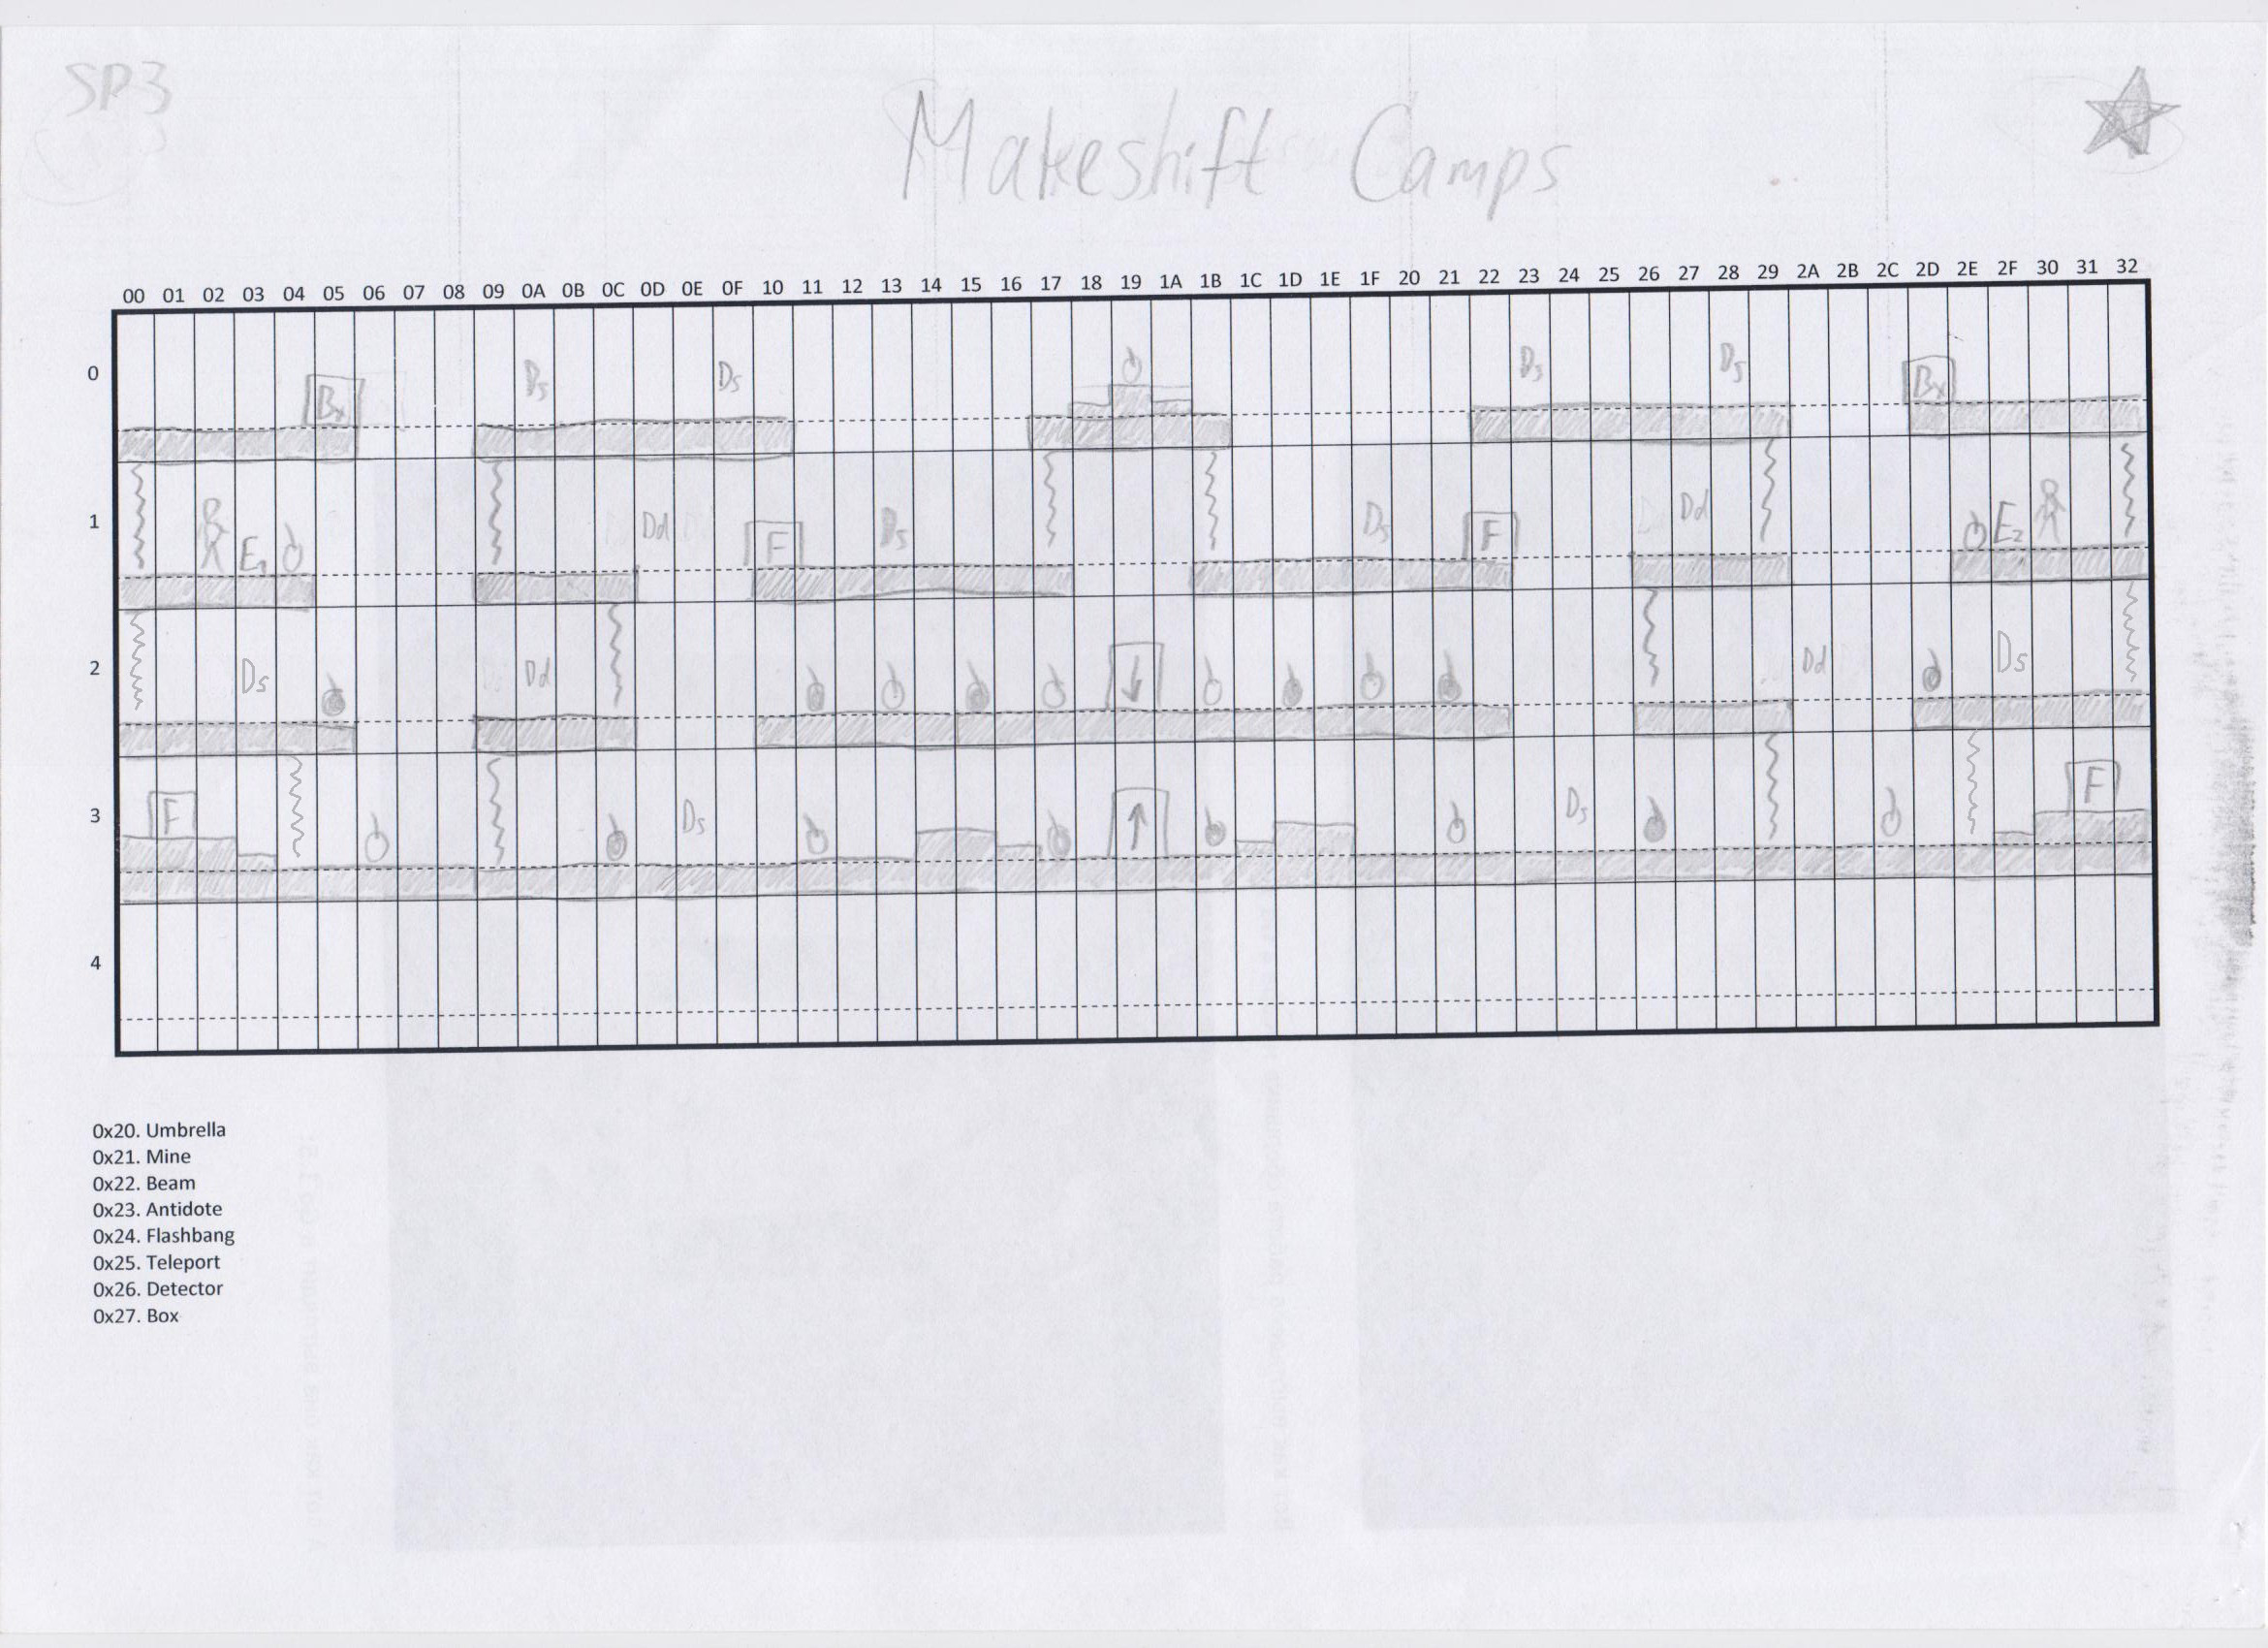 SP3
Makeshift Camps
00 01 02 03 04 05 06 07 08 09 0A 0B 0C 0D 0E 0F 10 11 12 13 14 15 16 17 18 19 1A 1B 1C 1D 1E 1F 20 21 22 23 24 25 26 27 28 29 2A 2B 2C 2D 2E 2F 30 31 32
0 Bx Ds Ds Ds Ds Bx
1 E1 Dd F Ds Ds F Dd E2
2 Ds Dd Dd Ds
3 F Ds Ds F
4
0x20. Umbrella
0x21. Mine
0x22. Beam
0x23. Antidote
0x24. Flashbang
0x25. Teleport
0x26. Detector
0x27. Box